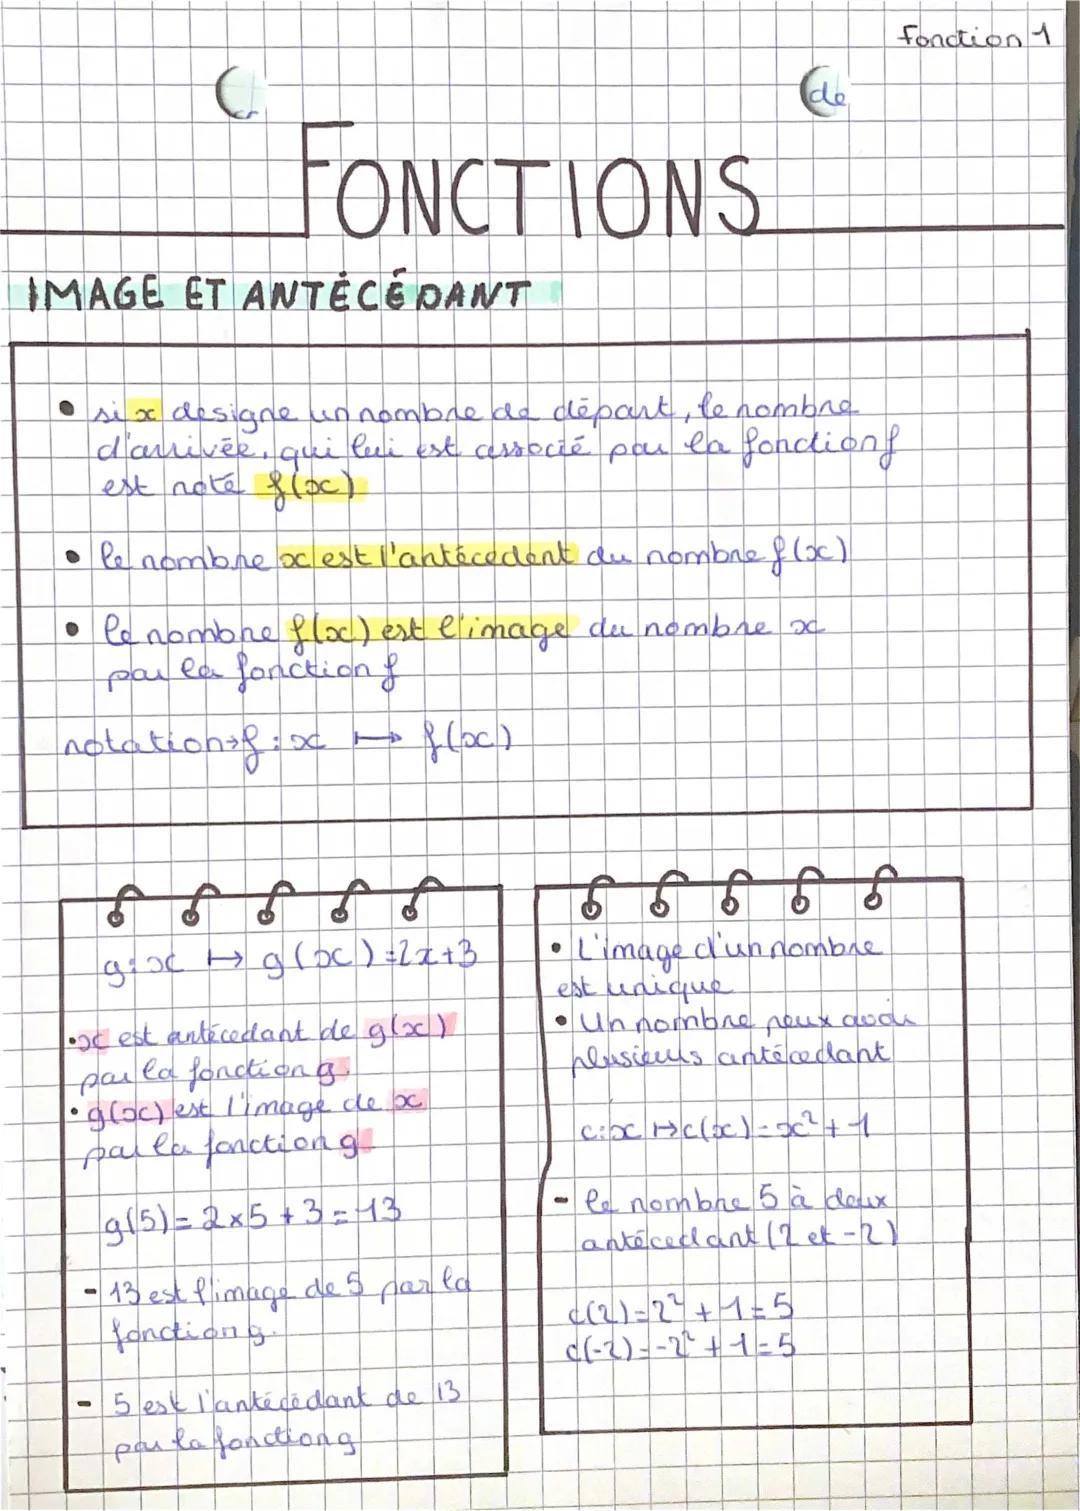 fonction 1
cr
de
FONCTIONS
IMAGE ET ANTÉCÉDANT
• si x designe un nombre de départ, le nombre
d'arrivée, qui lui est associé par la fonction f
est noté f(x)
• le nombre x est l'antécédent du nombre f(x)
• le nombre f(x) est l'image du nombre x
par la fonction f
notation→f : x ↦ f(x)
g : x ↦ g(x)=2x+3
• x est antécedant de g(x)
par la fonction g.
• g(x) est l'image de x
par la fonction g
g(5) = 2×5 + 3 = 13
- 13 est l'image de 5 par la
fonction g.
- 5 est l'antécédant de 13
par la fonction g
• L'image d'un nombre
est unique
• Un nombre peux avoir
plusieurs antécedant
c : x ↦ c(x) = x² + 1
- le nombre 5 à deux
antécedant (2 et -2)
c(2) = 2² + 1 = 5
c(-2) = -2² + 1 = 5